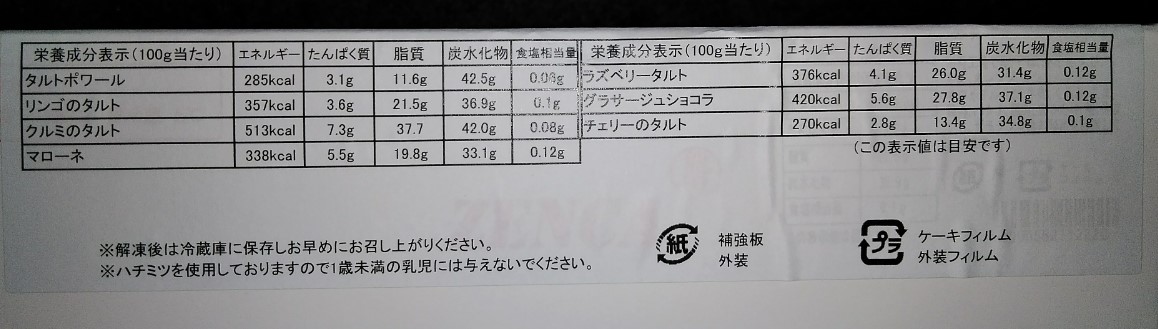 栄養成分表示(100g当たり) エネルギー たんぱく質 脂質 炭水化物 食塩相当量
タルトポワール 285kcal 3.1g 11.6g 42.5g 0.06g
リンゴのタルト 357kcal 3.6g 21.5g 36.9g 0.1g
クルミのタルト 513kcal 7.3g 37.7 42.0g 0.08g
マローネ 338kcal 5.5g 19.8g 33.1g 0.12g
栄養成分表示(100g当たり) エネルギー たんぱく質 脂質 炭水化物 食塩相当量
ラズベリータルト 376kcal 4.1g 26.0g 31.4g 0.12g
グラサージュショコラ 420kcal 5.6g 27.8g 37.1g 0.12g
チェリーのタルト 270kcal 2.8g 13.4g 34.8g 0.1g
(この表示値は目安です)
※解凍後は冷蔵庫に保存しお早めにお召し上がりください。
※ハチミツを使用しておりますので1歳未満の乳児には与えないでください。
紙
補強板
外装
プラ
ケーキフィルム
外装フィルム